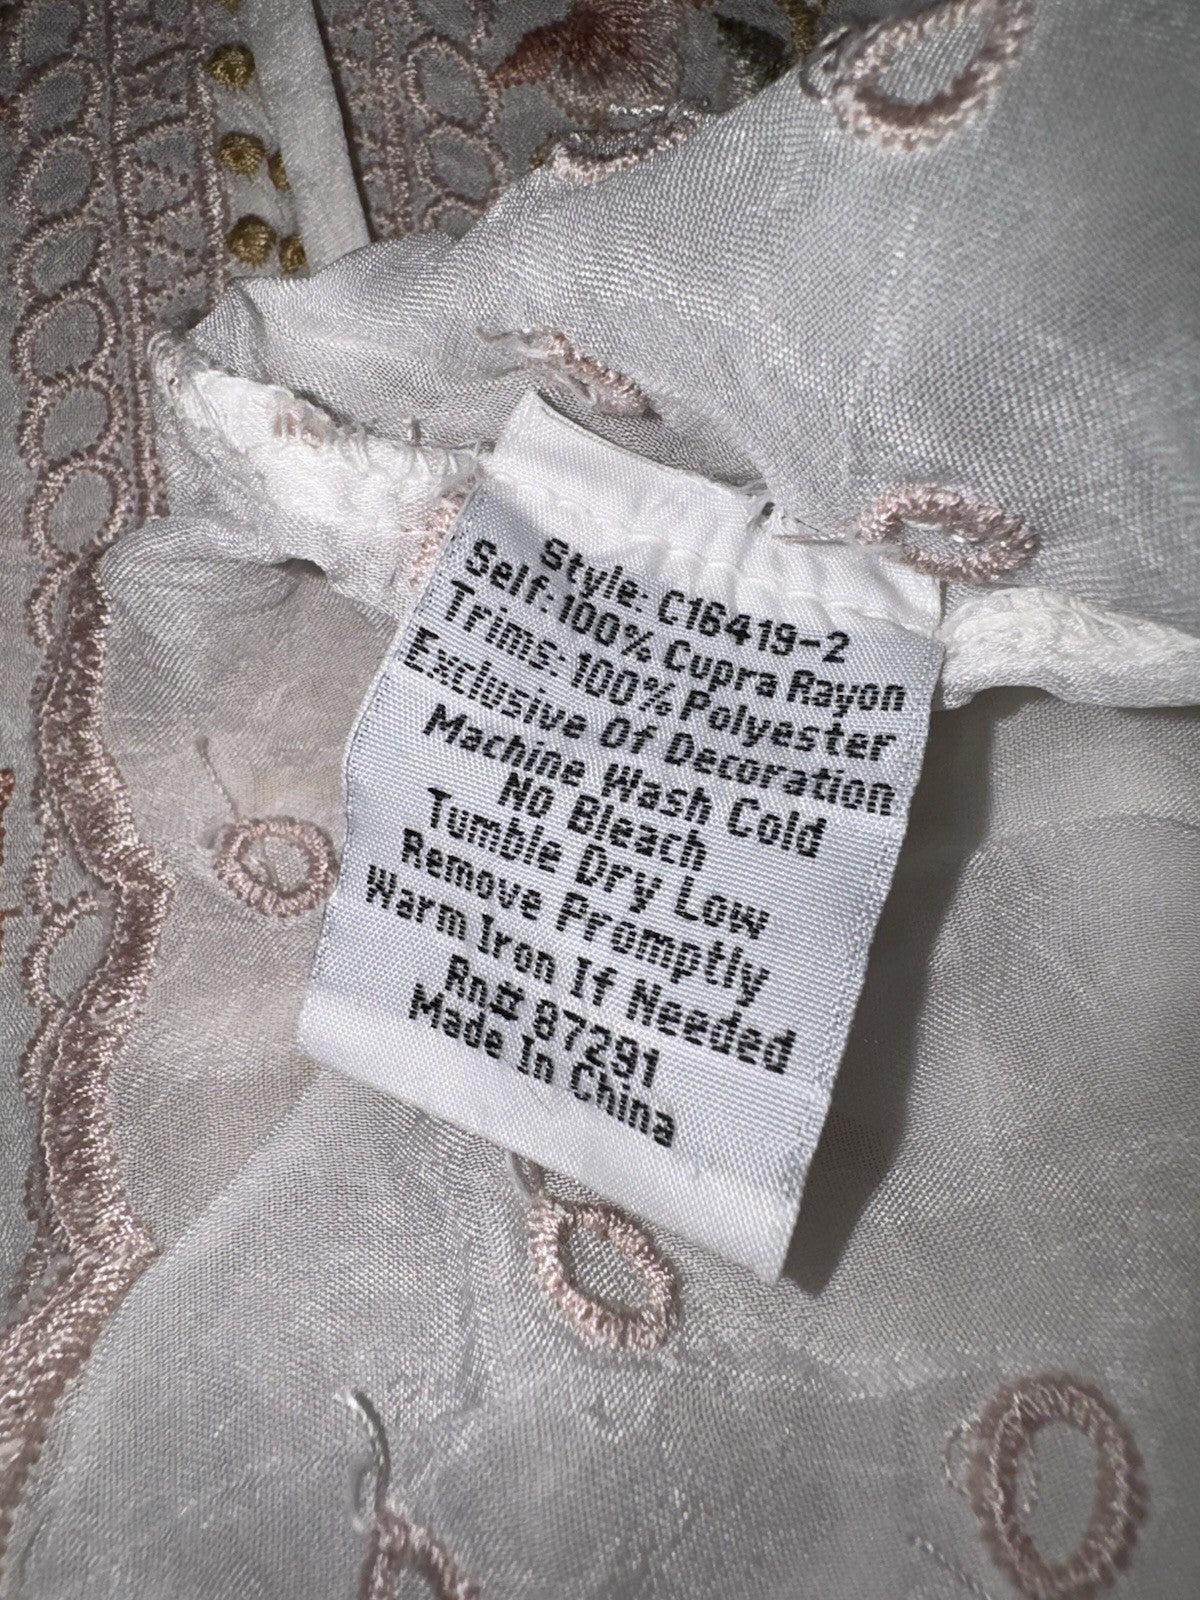 Style: C16419-2
Self: 100% Cupra Rayon
Trims: 100% Polyester
Exclusive Of Decoration
Machine Wash Cold
No Bleach
Tumble Dry Low
Remove Promptly
Warm Iron If Needed
Rn# 87291
Made In China